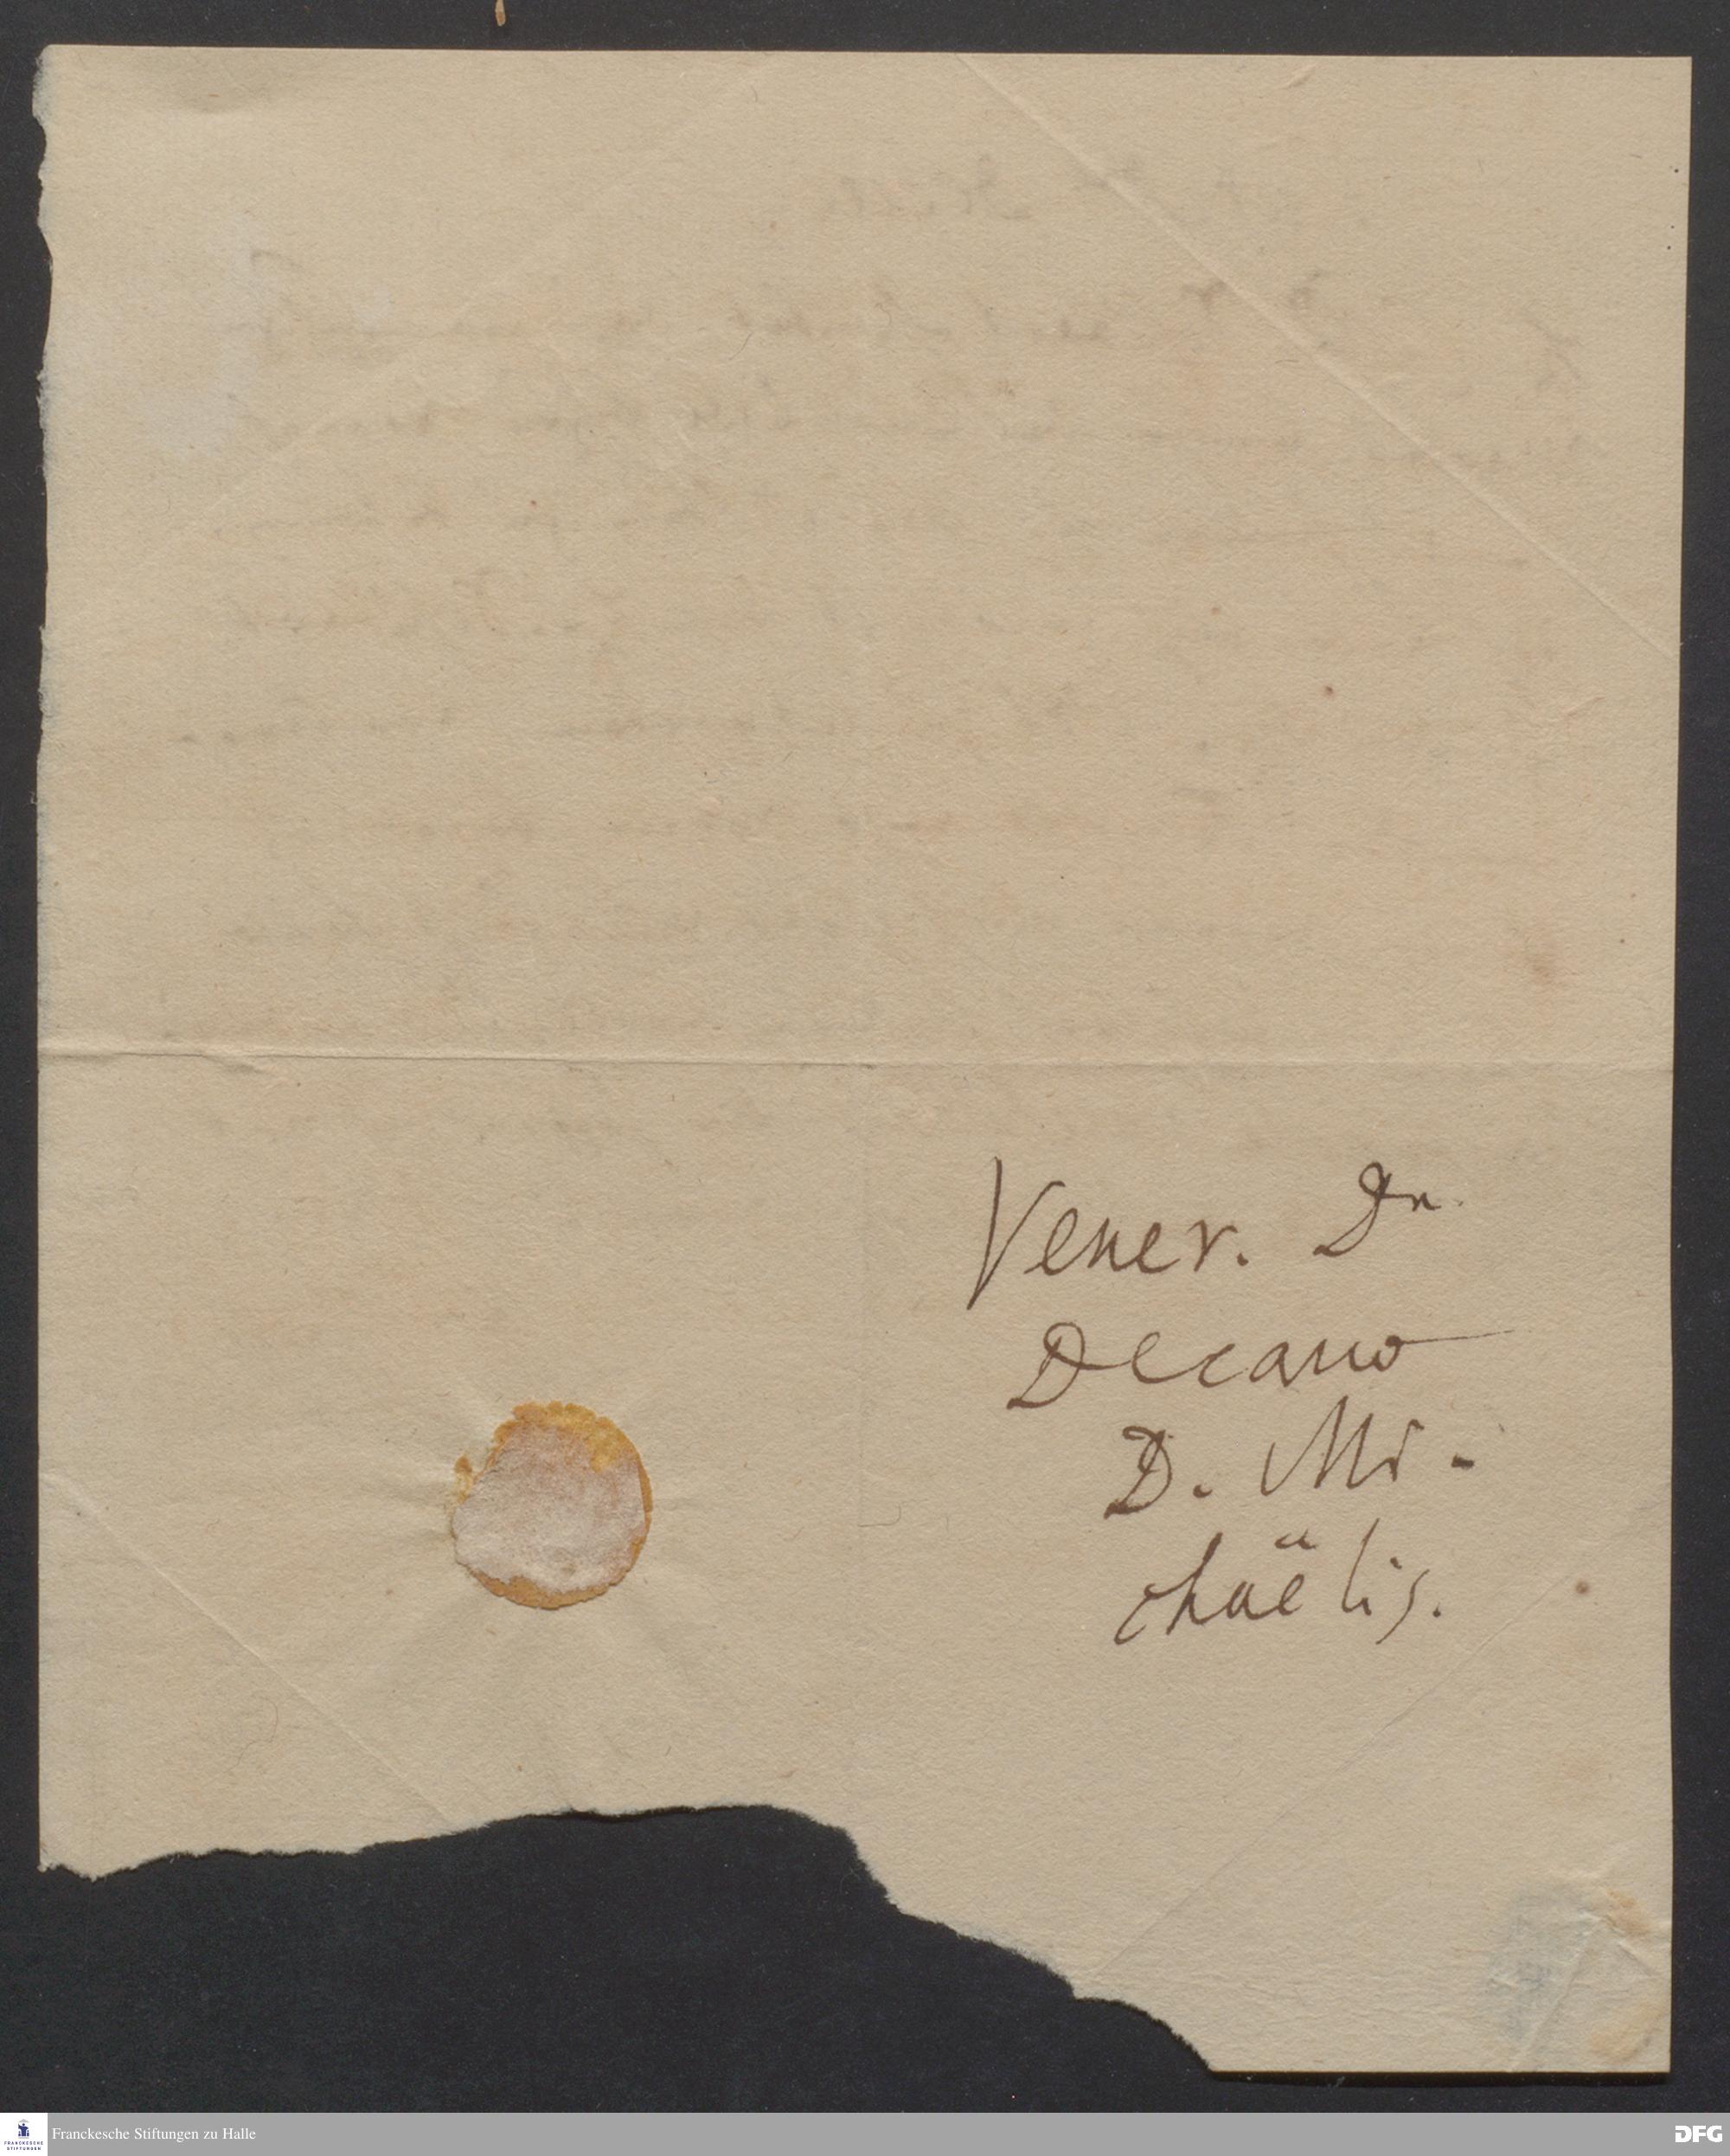 Vener. Dn.
Decano
D. Mi-
chaëlis.
Franckesche Stiftungen zu Halle
FRANCKESCHE
STIFTUNGEN
DFG